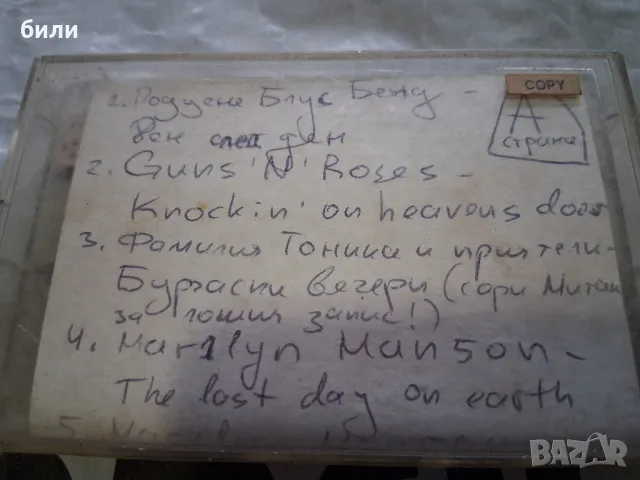 били
COPY
А
страна
1. Подуене Блус Бенд -
Ден след ден
2. Guns 'N' Roses -
Knockin' on heavens door
3. Фамилия Тоника и приятели -
Бургаски вечери (сори Митак
за лошия запис!)
4. Marilyn Manson -
The last day on earth
5.
BAZAR